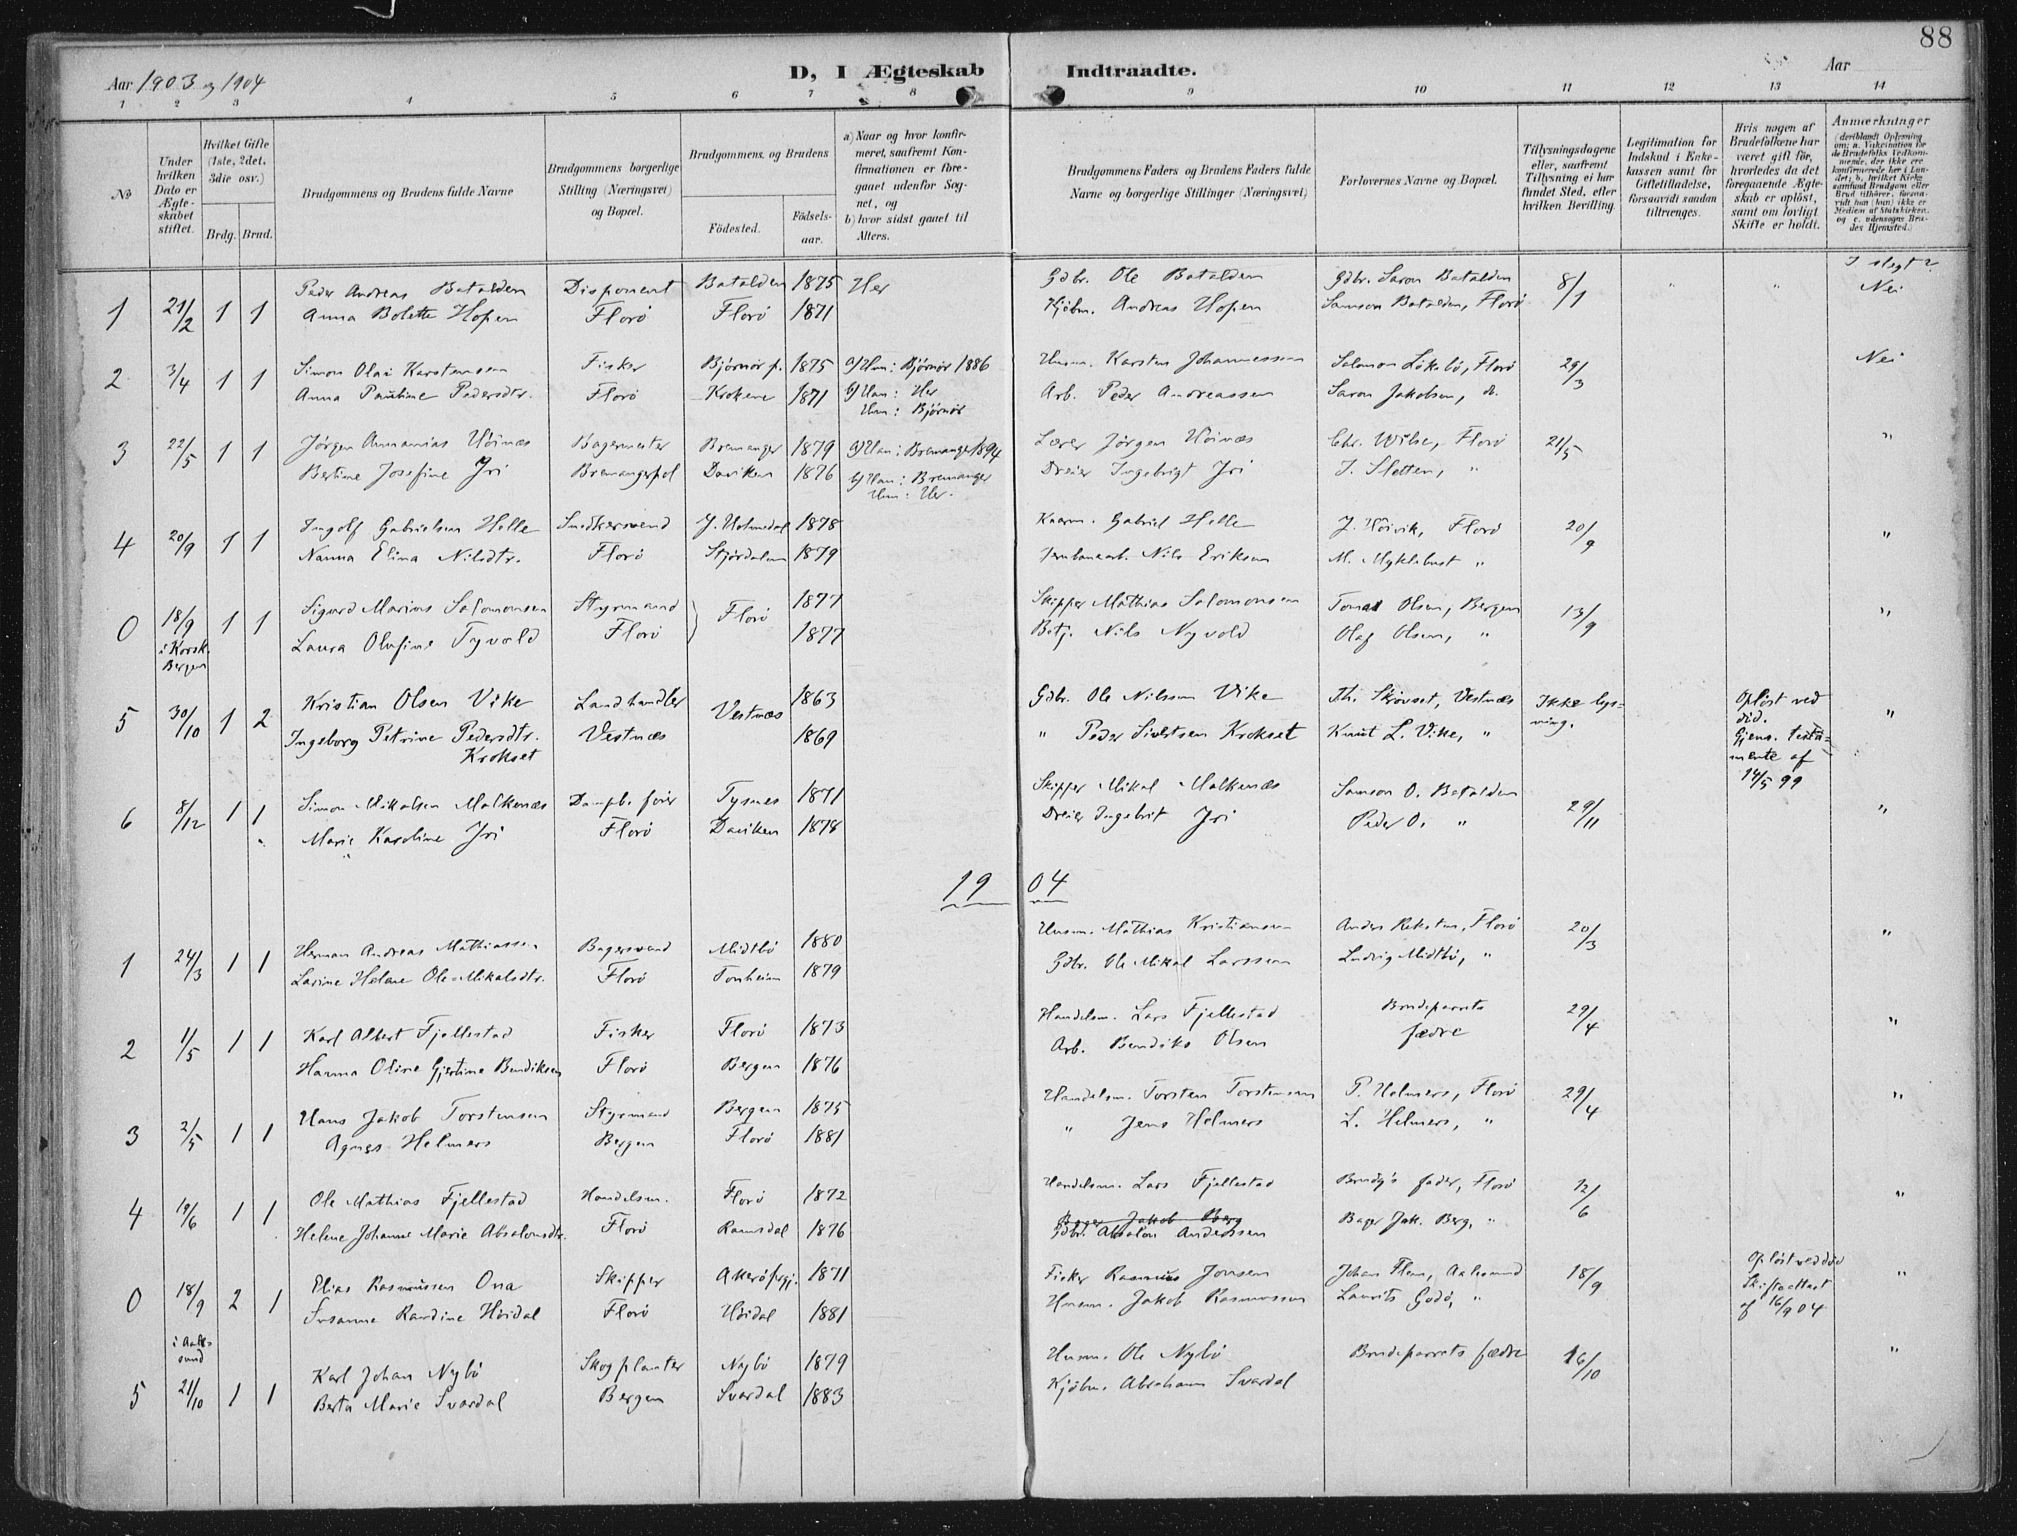 88
Aar 1903 og 1904
D, I Ægteskab Indtraadte.
Aar
1 2 3 4 5 6 7 8 9 10 11 12 13 14
No
Under hvilken Dato er Ægteskabet stiftet.
Hvilket Gifte (1ste, 2det, 3die osv.)
Brdg. Brud.
Brudgommens og Brudens fulde Navne
Brudgommens borgerlige Stilling (Næringsvei) og Bopæl.
Brudgommens og Brudens
Födested.
Födselsaar.
a) Naar og hvor konfirmeret, saafremt Konfirmationen er foregaaet udenfor Sognet, og
b) hvor sidst gaaet til Alters.
Brudgommens Faders og Brudens Faders fulde Navne og borgerlige Stillinger (Næringsvei)
Forlovernes Navne og Bopæl.
Tillysningsdagene eller, saafremt Tillysning ei har fundet Sted, efter hvilken Bevilling.
Legitimation for Indskud i Enkekassen samt for Giftetilladelse, forsaavidt saadan tiltrænges.
Hvis nogen af Brudefolkene har været gift för, hvorledes da det foregaaende Ægteskab er oplöst, samt om lovligt Skifte er holdt.
Anmærkninger
I slegt?
1 21/2 1 1 Peder Andreas Batalden Disponent Batalden 1875 Her Gdbr. Ole Batalden Gdbr. Saron Batalden 8/1 " " Nei
Anna Bolette Hopen Florø Florø 1871 Kjøbm. Andreas Hopen Samson Batalden, Florø
2 3/4 1 1 Simon Olai Karstensen Fisker Bjørnør p. 1875 a) Hun: Bjørnør 1886 Husm. Karsten Johannessen Salomon Løkebø, Florø 29/3 Nei
Anna Pauline Pedersdtr. Florø Krokene 1871 b) Han: Her Arb. Peder Andreassen Saron Jakobsen, do.
Hun: Bjørnør
3 22/5 1 1 Jørgen Annanias Høinæs Bagermester Bremanger 1879 a) Han: Bremanger 1894 Lærer Jørgen Høinæs Chr. Wilse, Florø 21/5 "
Bertine Josefine Iri Bremangerpol Daviken 1876 b) Han: Bremanger Dreier Ingebrigt Iri I. Sletten, "
Hun: Her.
4 20/9 1 1 Ingolf Gabrielsen Helle Smedkersvend Y. Holmedal 1878 Kaarm. Gabriel Helle J. Høivik, Florø 20/9 "
Nanna Elina Nilsdtr. Florø Stjørdalen 1879 Jernbanearb. Nils Eriksen M. Myklebust "
0 18/9 1 1 Sigurd Marius Salomonsen Styrmand Florø 1877 Skipper Mathias Salomonsen Tomas Olsen, Bergen 13/9 "
i Korsk. Bergen Laura Olufine Tyvold Florø 1877 Betj. Nils Nyvold Olaf Olsen, "
5 30/10 1 2 Kristian Olsen Vike Landhandler Vestnæs 1863 Gdbr. Ole Nilssen Vike Th. Skrovset, Vestnæs Ikke lysning. Opløst ved død. "
Ingeborg Petrine Pedersdtr. Krokset Vestnæs 1869 " Peder Sivertsen Krokset Knut L. Vike, " Gjens. testamente af 14/5 99
6 8/12 1 1 Simon Mikalsen Malkenæs Dampb. fører Tysnes 1871 Skipper Mikal Malkenæs Samson O. Batalden 29/11 "
Marie Karoline Iri Florø Daviken 1878 Dreier Ingebrit Iri Peder O. "
1904
1 24/3 1 1 Herman Andreas Mathiassen Bagersvend Midtbø 1880 Husm. Mathias Kristiansen Anders Reksten, Florø 20/3 "
Larine Helene Ole-Mikalsdtr. Florø Tonheim 1879 Gdbr. Ole Mikal Larssen Ludvig Midtbø, "
2 1/5 1 1 Karl Albert Fjellestad Fisker Florø 1873 Handelsm. Lars Fjellestad Brudeparrets 29/4 "
Hanna Oline Gjertine Bendiksen Florø Bergen 1876 Arb. Bendiks Olsen fædre
3 2/5 1 1 Hans Jakob Torstensen Styrmand Bergen 1875 Handelsm. Torsten Torstensen P. Helmers, Florø 29/4 "
Agnes Helmers Bergen Florø 1881 " Jens Helmers L. Helmers, "
4 19/6 1 1 Ole Mathias Fjellestad Handelsm. Florø 1872 Handelsm. Lars Fjellestad Brudg's fader, Florø 12/6 "
Helene Johanne Marie Absalonsdtr. Florø Ramsdal 1876 Bager Jakob Berg Bager Jak. Berg, "
Gdbr. Absalon Anderssen
0 18/9 2 1 Elias Rasmussen Ona Skipper Akerø prgj. 1871 Fisker Rasmus Jonsen Johan Flem, Aalesund 18/9 Opløst ved død "
i Aalesund Susanne Randine Høidal Florø Høidal 1881 Husm. Jakob Rasmussen Laurits Godø, " Skifteattest af 16/9 04
5 21/10 1 1 Karl Johan Nybø Skogplanter Nybø 1879 Husm. Ole Nybø Brudeparrets fædre 16/10 "
Berta Marie Svardal Bergen Svardal 1883 Kjøbm. Abraham Svardal